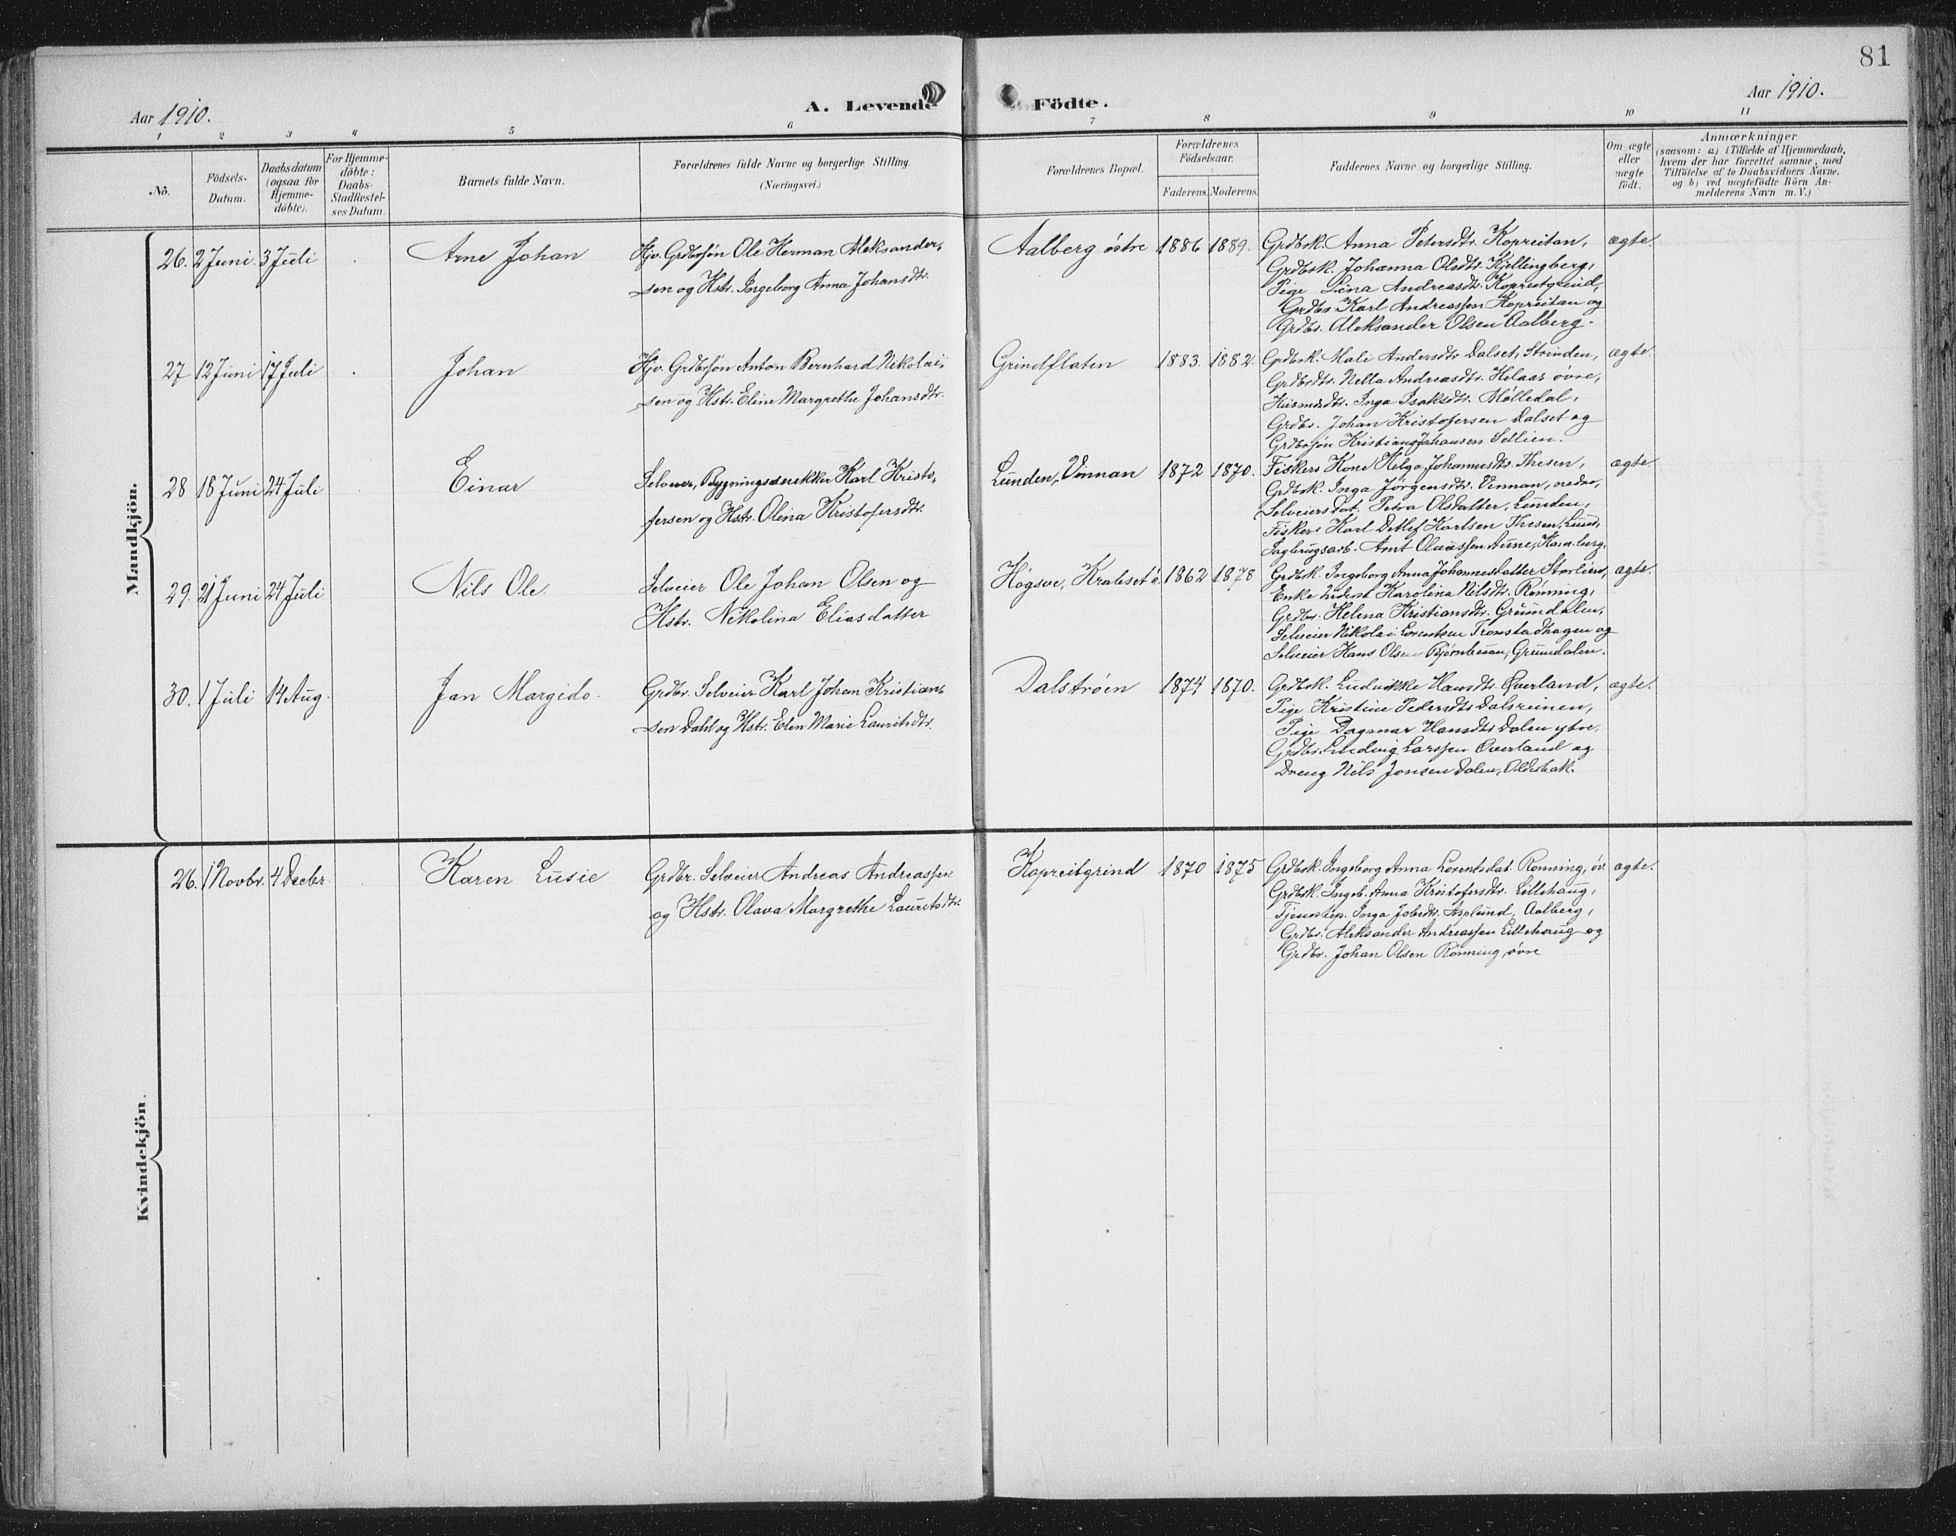 81
Aar 1910.
A. Levende Födte.
Aar 1910.
1 2 3 4 5 6 7 8 9 10 11
No.
Födsels-Datum.
Daabsdatum (ogsaa for Hjemme-döbte).
For Hjemme-döbte: Daabs-Stadfæstel-ses Datum
Barnets fulde Navn.
Forældrenes fulde Navne og borgerlige Stilling.
(Næringsvei.)
Forældrenes Bopæl.
Forældrenes Födselsaar.
Faderens. Moderens.
Faddernes Navne og borgerlige Stilling.
Om ægte eller uægte födt.
Anmærkninger
(saasom: a) i Tilfælde af Hjemmedaab,
hvem der har forrettet samme, med
Tilföielse af to Daabsvidners Navne,
og b) ved uægtefödte Börn An-
melderens Navn m. V.)
Mandkjön.
26. 2 Juni. 3 Juli Arne Johan
Hjv. Grdbrsøn Ole Herman Aleksander-
sen og Hstr. Ingeborg Anna Johansdtr.
Aalberg østre 1886 1889.
Grdbsk. Anna Petersdtr. Kopreitan,
Grdbsk. Johanna Olsdtr. Kjellingberg,
Pige Lina Andreasdtr. Kopreitgrind,
Grdbs. Karl Andreassen Kopreitan og
Grdbr. Aleksander Olsen Aalberg.
ægte.
27 12 Juni 17 Juli Johan
Hjv. Grdbrsøn Anton Bernhard Nikolai-
sen og Hstr. Eline Margrethe Johansdtr.
Grindflaten 1883. 1882.
Grdbsk. Mali Andersdtr. Dalset, Strinden,
Grdbrdtr. Nella Andreasdtr. Helaas øvre,
Husmdsdtr. Inga Isaksdtr. Mølledal,
Grdbr. Johan Kristofersen Dalset og
Grdbrsøn Kristian Johansen Sellien.
ægte.
28 18 Juni 24 Juli Einar
Selveier, Bygningssnekker Karl Kristo-
fersen og Hstr. Olina Kristofersdtr.
Lunden, Vinnan 1872 1870.
Fiskers Kone Helga Johannesdtr. Thesen,
Grdbsk. Inga Jørgensdtr. Vinnan, nedre,
Selveiersdat. Petra Olsdatter, Lunden,
Fisker Karl Detlef Karlsen Thesen, Lund,
Sagbrugsarb. Arnt Olaussen Aune,
ægte.
29. 21 Juni 24 Juli Nils Ole.
Selveier Ole Johan Olsen og
Hstr. Nikolina Eliasdatter
Høgsve, Krabset 1862 1878
Grdbsk. Ingeborg Anna Johannesdatter Storlien,
Enke Karolina Nilsdtr. Rønning,
Grdbr. Helena Kristiansdtr. Grundalen,
Selveier Nikolai Lorentsen Tromstadhagen og
Selveier Hans Olsen Grundalen.
ægte.
30. 1 Juli 14 Aug. Jan Margido.
Grdbr. Selveier Karl Johan Kristian-
sen Dahl og Hstr. Elen Marie Lauritsdtr.
Dalstrøen 1874 1870.
Grdbsk. Ludvikke Hansdtr. Øverland,
Pige Kristine Pedersdtr Dalsreinen,
Pige Dagmar Hansdtr Dalen ytre.
Grdbr. Ludvig Larssen Overland og
Dreng Nils Jonsen Dalen, Oldsbak.
ægte.
Kvindekjön.
26. 1 Novbr. 4 Decbr. Karen Lusie
Grdbr. Selveier Andreas Andreassen
og Hstr. Olava Margrethe Lauritsdtr.
Kopreitgrind 1870 1875
Grdbsk. Ingeborg Anna Lorentsdat. Rønning, øv.
Grdbsk. Ingeb. Anna Kristofersdtr. Lillehaug,
Tjenstep. Inga Jobsdtr. Asplund, Aalberg,
Grdbr. Aleksander Andreassen Lillehaug og
Grdbr. Johan Olsen Rønning, øvre
ægte.